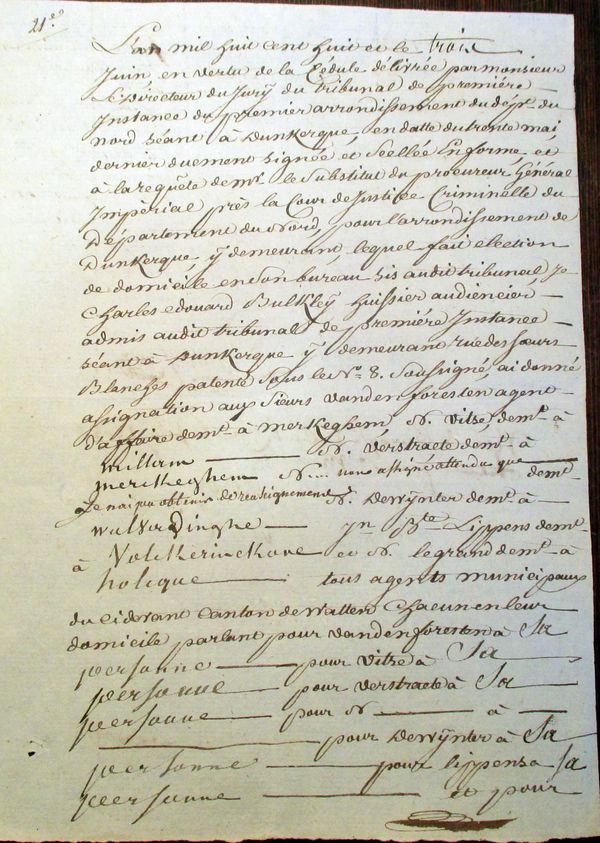 L'an mil huit cent huit et le trois
Juin, en vertu de la Cédule délivrée par monsieur
Le Directeur du Jury du tribunal de premiére
Instance du premier arrondissement du dépt. du
nord séant à Dunkerque, en datte du trente mai
dernier duement signée et Scellée en forme, et
à la requête de mr. le Substitut du procureur Général
Impérial près la Cour de Justice Criminelle du
Département du Nord, pour l'arrondissement de
Dunkerque, y demeurant, lequel fait election
de domicile en Son bureau Sis audit tribunal, Je
Charles edouard Bulkley huissier audiencier
admis audit tribunal de premiére Instance
séant à Dunkerque y demeurant rue des Sœurs
Blanches patenté Sous le No. 8. Soussigné, ai donné
assignation aux Sieurs vanden foresten agent
d'affaire demt. à merkeghem, N. vitse, demt. à
millam N. verstracte demt. à
merckeghem N... non assigné attendu que demt.
Je n'ai pu obtenir de renseignement N. Dewynter demt. à
wulverdinghe Jn. Bte. Lippens demt.
à Volckerinckove et N. legrand demt. à
holcque tous agents municipaux
du cidevant Canton de watten Chacun en leur
domicile parlant pour vanden foresten à Sa
personne pour vitse à Sa
personne pour verstracte à Sa
personne pour N à
pour Dewynter à Sa
personne pour lippens a Sa
personne et pour